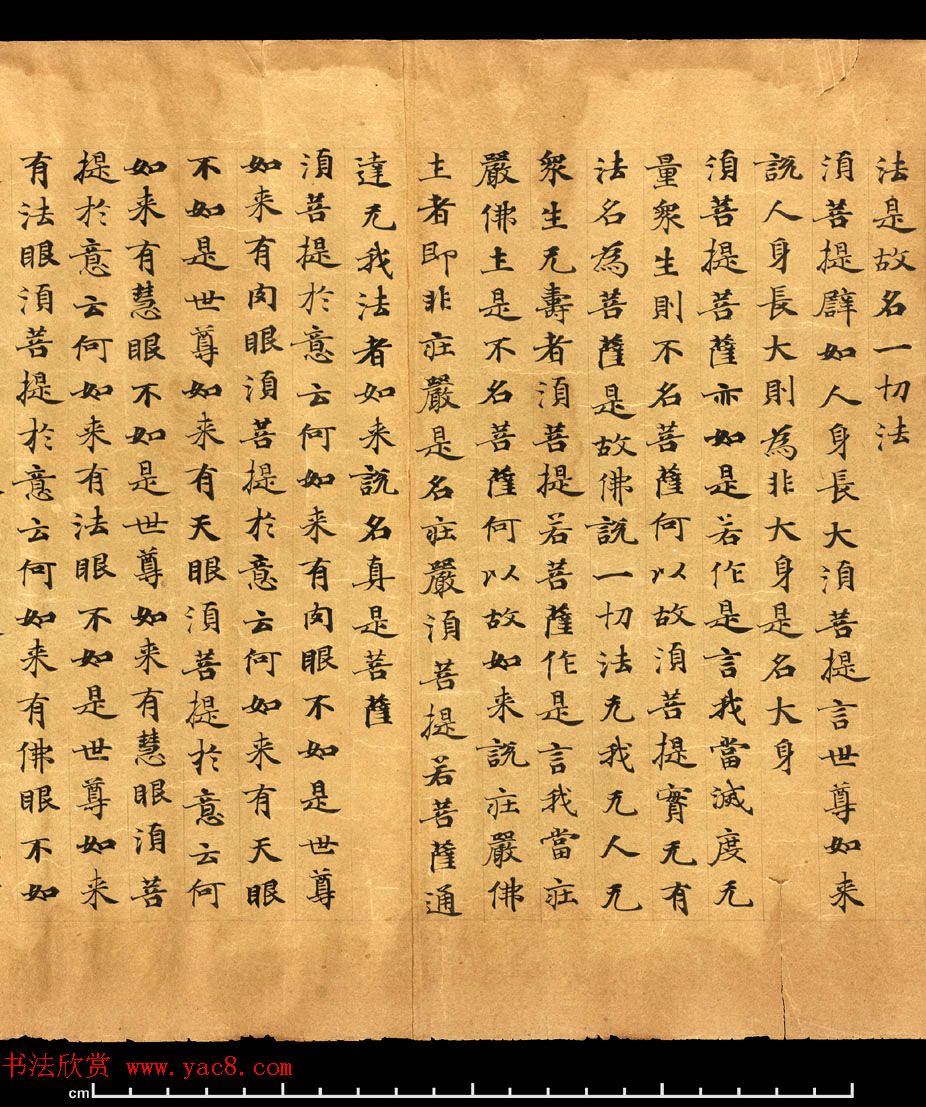 法是故名一切法
湏菩提辟如人身長大湏菩提言世尊如来
說人身長大則為非大身是名大身
湏菩提菩薩亦如是若作是言我當滅度无
量衆生則不名菩薩何以故湏菩提實无有
法名為菩薩是故佛說一切法无我无人无
衆生无壽者湏菩提若菩薩作是言我當莊
嚴佛土是不名菩薩何以故如来說莊嚴佛
土者即非莊嚴是名莊嚴湏菩提若菩薩通
達无我法者如来說名真是菩薩
湏菩提於意云何如来有肉眼不如是世尊
如来有肉眼湏菩提於意云何如来有天眼
不如是世尊如来有天眼湏菩提於意云何
如来有慧眼不如是世尊如来有慧眼湏菩
提於意云何如来有法眼不如是世尊如来
有法眼湏菩提於意云何如来有佛眼不如
书法欣赏 www.yac8.com
cm